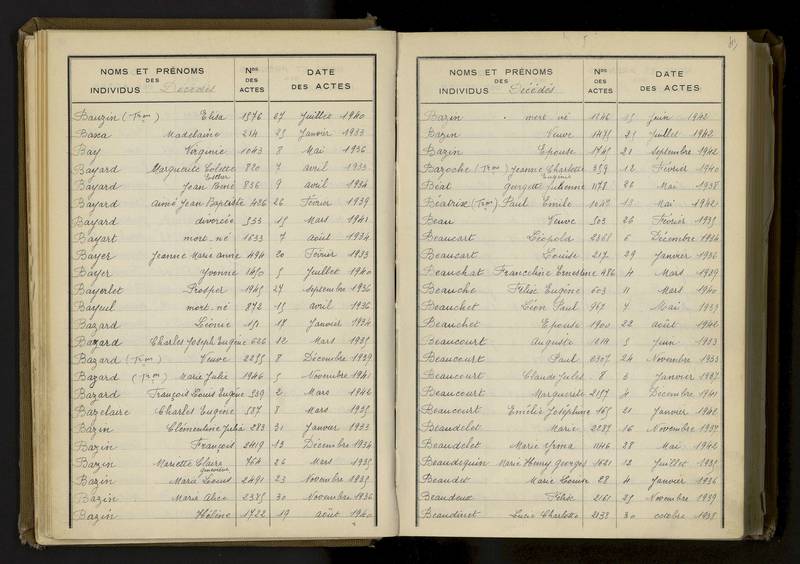 NOMS ET PRÉNOMS DES INDIVIDUS Décédés | Nos DES ACTES | DATE DES ACTES
Bauzin (Tron) Elisa 1576 27 Juillet 1940
Baxa Madelaine 214 25 Janvier 1933
Bay Virginie 1043 8 Mai 1936
Bayard Marguerite Colette Esther 820 7 avril 1933
Bayard Jean René 836 9 avril 1934
Bayard aimé Jean Baptiste 436 26 Février 1939
Bayard divorcée 533 15 Mars 1941
Bayart mort né 1633 7 août 1934
Bayer Jeanne Marie anne 494 20 Février 1933
Bayer Yvonne 1450 5 Juillet 1940
Bayerlet Prosper 1945 27 septembre 1936
Bayeul mort né 872 15 avril 1936
Bazard Léonie 151 17 Janvier 1934
Bazard Charles Joseph Eugène 626 12 Mars 1935
Bazard (Tron) Veuve 2255 8 Décembre 1939
Bazard (Tron) Marie Julie 1946 5 Novembre 1941
Bazard François Louis Eugène 539 2 Mars 1942
Bazelaire Charles Eugène 587 8 Mars 1935
Bazin Clémentine Julia 283 31 Janvier 1933
Bazin François 2419 13 Décembre 1934
Bazin Mariette Claire Geneviève 764 26 Mars 1935
Bazin Marie Louise 2491 23 Novembre 1935
Bazin Marie Alice 2385 30 Novembre 1936
Bazin Hélène 1722 19 août 1940
NOMS ET PRÉNOMS DES INDIVIDUS Décédés | Nos DES ACTES | DATE DES ACTES
Bazin mort né 1246 15 Juin 1942
Bazin Veuve 1495 25 Juillet 1942
Bazin Epouse 1745 21 septembre 1942
Bazoche (Tron) Jeanne Charlotte 359 12 Février 1940
Béat Georgette Eugénie Julienne 1178 26 Mai 1938
Béatrix (Tron) Paul Emile 1047 13 Mai 1942
Beau Veuve 503 26 Février 1935
Beaucart Léopold 2361 6 Décembre 1934
Beaucart Louise 217 29 Janvier 1936
Beauchat Franceline Ernestine 486 4 Mars 1939
Beauche Félix Eugène 603 11 Mars 1940
Beauchet Léon Paul 967 7 Mai 1939
Beauchet Epouse 1900 22 août 1942
Beaucourt Auguste 1214 5 Juin 1933
Beaucourt Paul 2307 24 Novembre 1933
Beaucourt Claude Jules 8 3 Janvier 1937
Beaucourt Marguerite 2157 4 Décembre 1941
Beaucourt Emélie Joséphine 165 21 Janvier 1942
Beaudelet Marie 2287 16 Novembre 1937
Beaudelot Marie Yrma 1146 28 Mai 1942
Beaudequin Marie Henry Georges 1621 12 Juillet 1935
Beaudet Marie Louise 28 4 Janvier 1936
Beaudeux Félix 2161 25 Novembre 1939
Beaudinet Lucie Charlotte 2133 30 octobre 1938